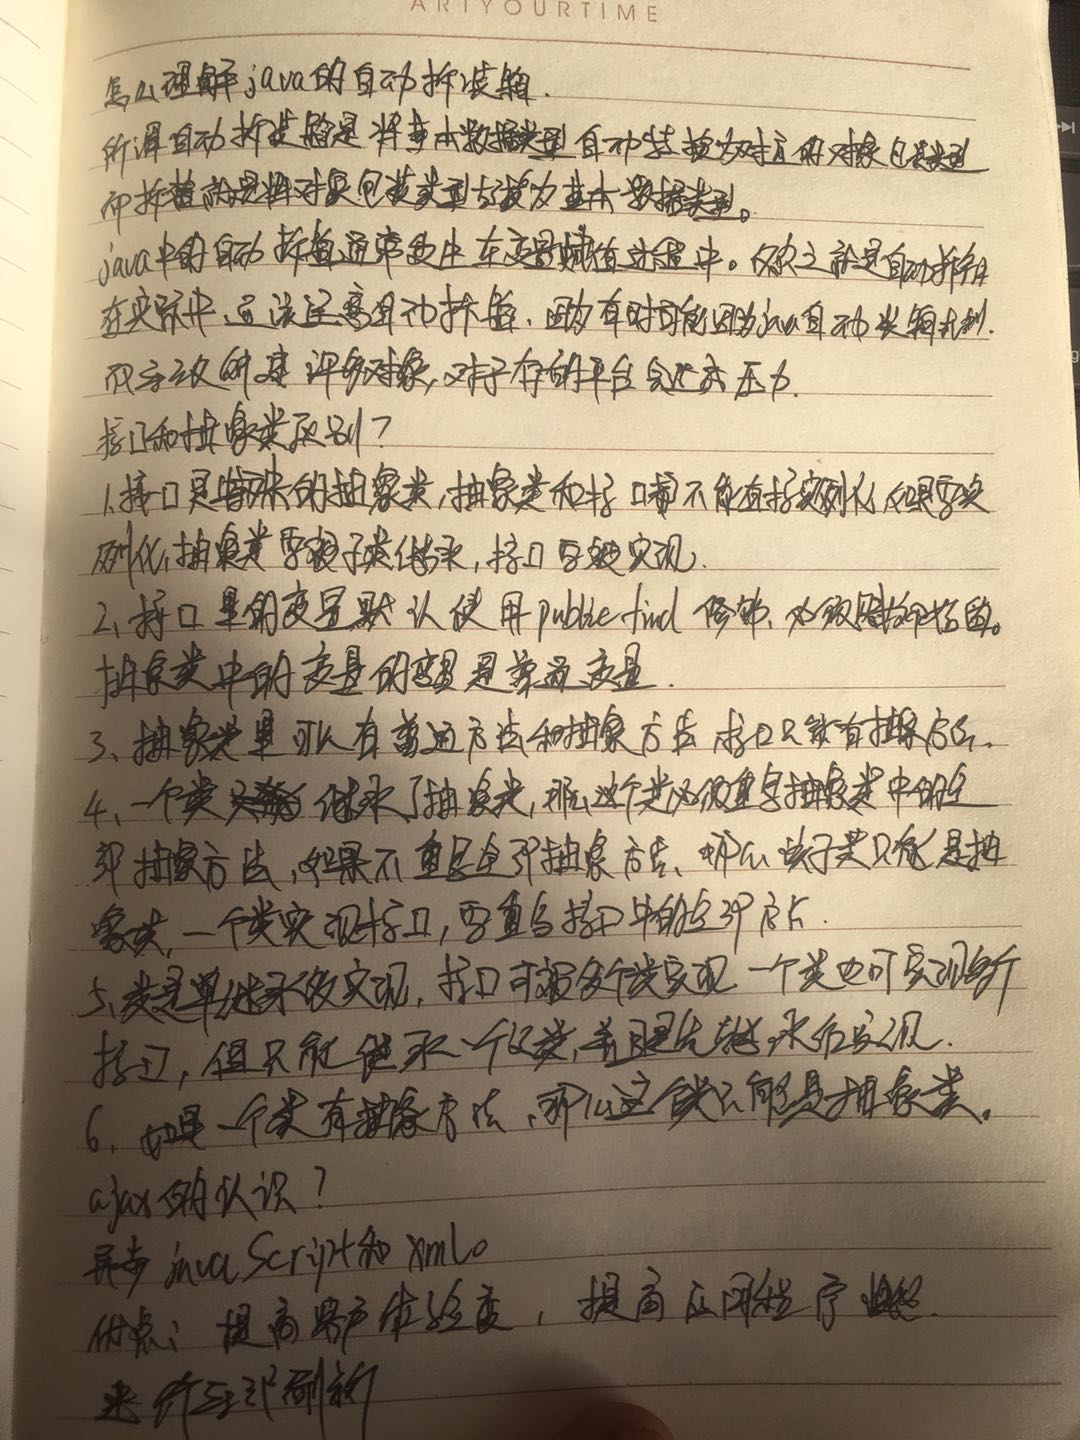 ARTYOURTIME
怎么理解java的自动拆装箱.
所谓自动拆装箱是将基本数据类型自动转换为对应的对象包装类型
而拆箱就是将对象包装类型转换为基本数据类型。
java中的自动拆箱通常发生在变量赋值过程中。反之就是自动拆箱
在实际中,应该注意自动拆箱,因为有时可能因为java自动装箱机制.
而导致创建许多对象,对于内存的平台会造成压力.
接口和抽象类区别?
1.接口是特殊的抽象类,抽象类和接口都不能直接实列化,如果要实
列化,抽象类要被子类继承,接口要被实现.
2、接口里的变量默认使用public find 修饰、必须
抽象类中的变量的变量是普通变量.
3、抽象类里可以有普通方法和抽象方法,接口只能有抽象方法.
4、一个类继承了抽象类,那么这个类必须重写抽象类中的全
部抽象方法,如果不重写全部抽象方法、那么该子类只能是抽
象类,一个类实现接口,要重写接口中的全部方法.
5、类是单继承多实现,接口可被多个类实现 一个类也可实现多个
接口,但只能继承一个父类,并且是先继承后实现.
6、如果一个类有抽象方法、那么这个类只能是抽象类。
ajax的认识?
异步javaScript和xml。
优点:提高客户体验度,提高应用程序性能.
来 局部刷新